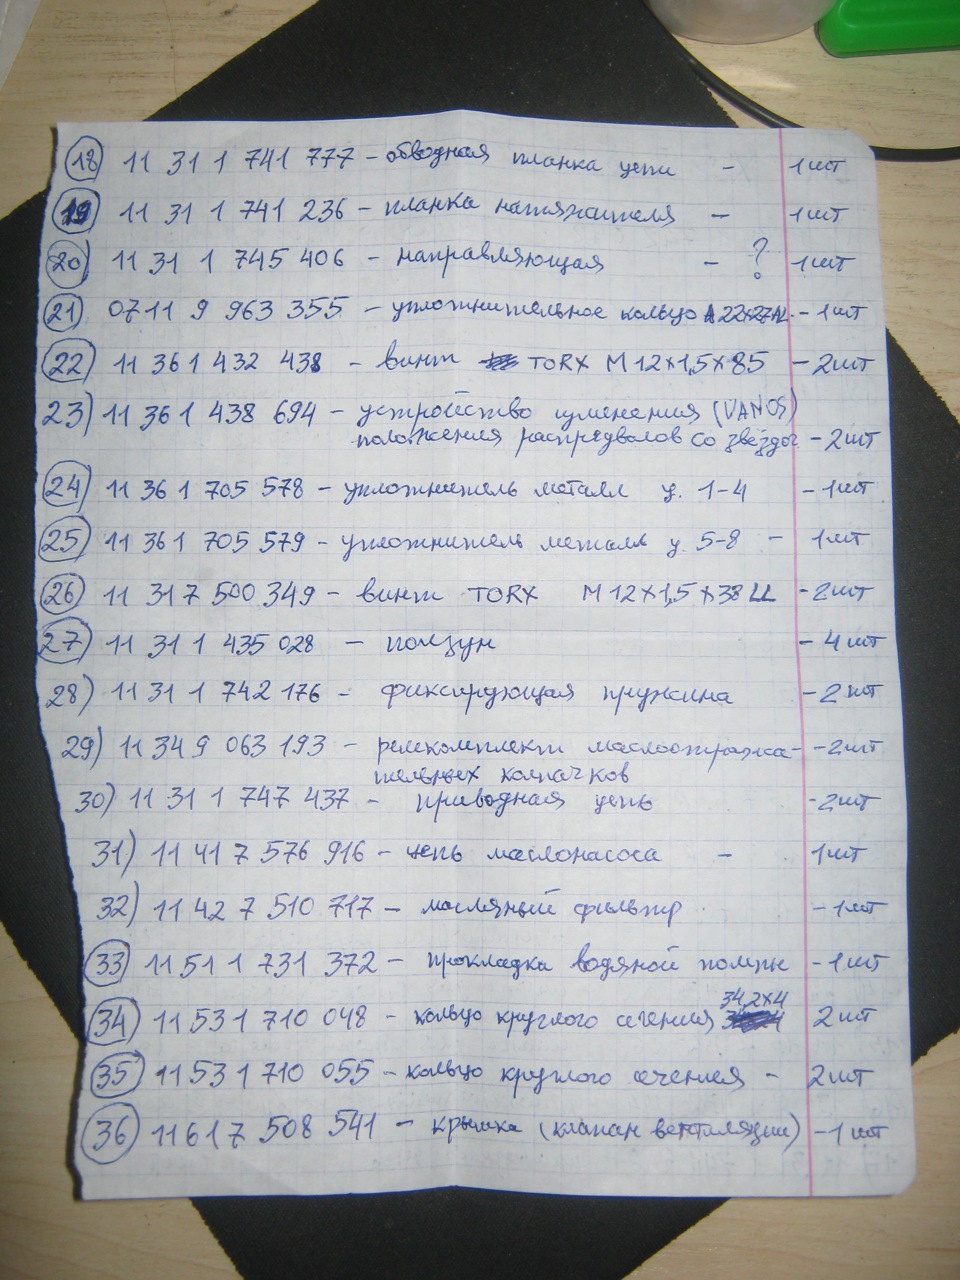 18) 11 31 1 741 777 - обводная планка цепи - 1 шт
19) 11 31 1 741 236 - планка натяжителя - 1 шт
20) 11 31 1 745 406 - направляющая - ? 1 шт
21) 07 11 9 963 355 - уплотнительное кольцо A 22x27 AL - 1 шт
22) 11 36 1 432 438 - винт TORX M 12x1,5x85 - 2 шт
23) 11 36 1 438 694 - устройство изменения (VANOS)
положения распредвалов со звездог - 2 шт
24) 11 36 1 705 578 - уплотнитель металл ц. 1-4 - 1 шт
25) 11 36 1 705 579 - уплотнитель металл ц. 5-8 - 1 шт
26) 11 31 7 500 349 - винт TORX M 12x1,5x38 LL - 2 шт
27) 11 31 1 435 028 - ползун - 4 шт
28) 11 31 1 742 176 - фиксирующая пружина - 2 шт
29) 11 34 9 063 193 - ремкомплект маслоотража-
тельных колпачков - 2 шт
30) 11 31 1 747 437 - приводная цепь - 2 шт
31) 11 41 7 576 916 - цепь маслонасоса - 1 шт
32) 11 42 7 510 717 - масляный фильтр - 1 шт
33) 11 51 1 731 372 - прокладка водяной помпы - 1 шт
34) 11 53 1 710 048 - кольцо круглого сечения 34,2x4 2 шт
35) 11 53 1 710 055 - кольцо круглого сечения - 2 шт
36) 11 61 7 508 541 - крышка (клапан вентиляции) - 1 шт